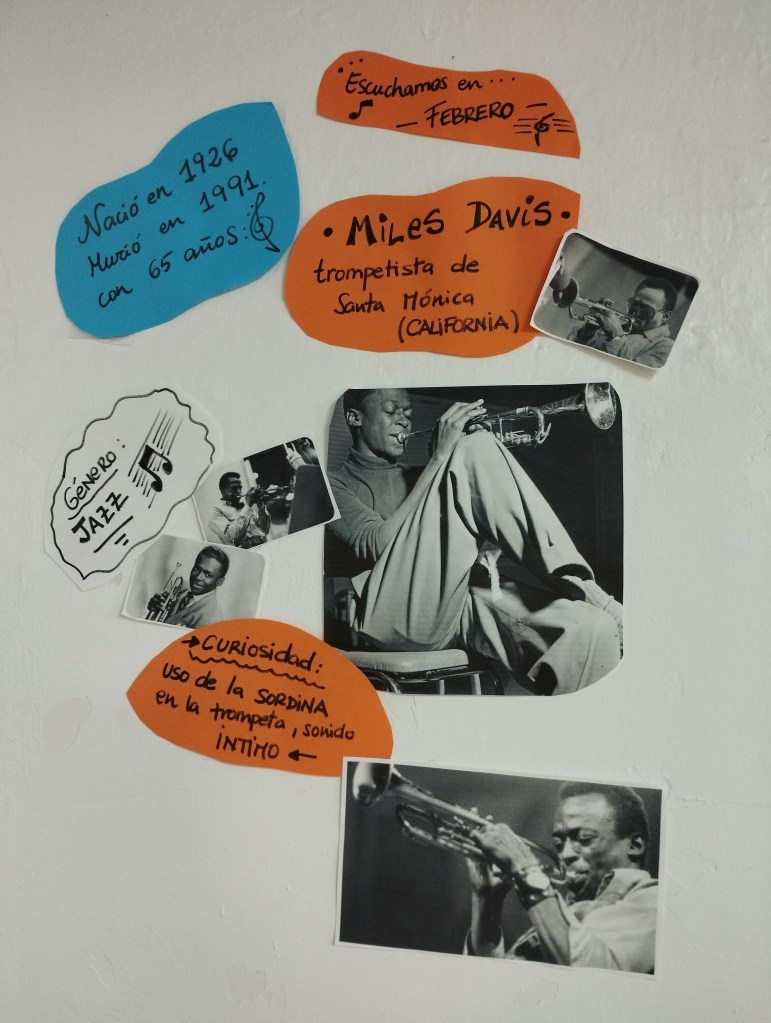 ... Escuchamos en ...
— FEBRERO —
Nació en 1926
Murió en 1991.
con 65 años.
• MILES DAVIS •
trompetista de
Santa Mónica
(CALIFORNIA)
GÉNERO:
JAZZ
→ CURIOSIDAD:
uso de la SORDINA
en la trompeta, sonido
ÍNTIMO ←